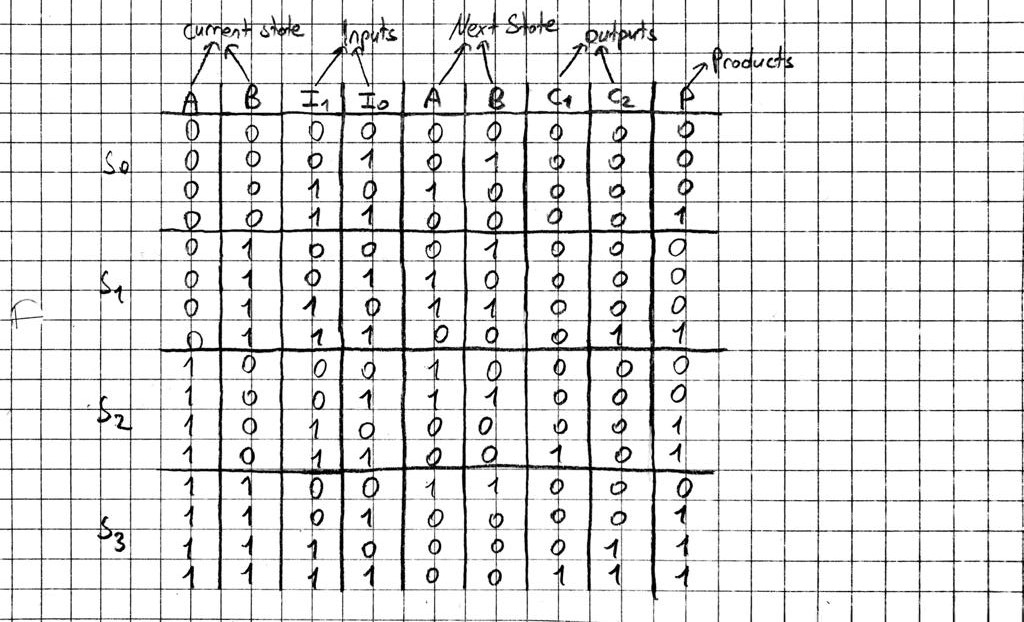 Current state Inputs Next State Outputs
Products
A B I1 I0 A B C1 C2 P
0 0 0 0 0 0 0 0 0
S0 0 0 0 1 0 1 0 0 0
0 0 1 0 1 0 0 0 0
0 0 1 1 0 0 0 0 1
0 1 0 0 0 1 0 0 0
S1 0 1 0 1 1 0 0 0 0
0 1 1 0 1 1 0 0 0
0 1 1 1 0 0 0 1 1
1 0 0 0 1 0 0 0 0
1 0 0 1 1 1 0 0 0
S2 1 0 1 0 0 0 0 0 1
1 0 1 1 0 0 1 0 1
1 1 0 0 1 1 0 0 0
S3 1 1 0 1 0 0 0 0 1
1 1 1 0 0 0 0 1 1
1 1 1 1 0 0 1 1 1